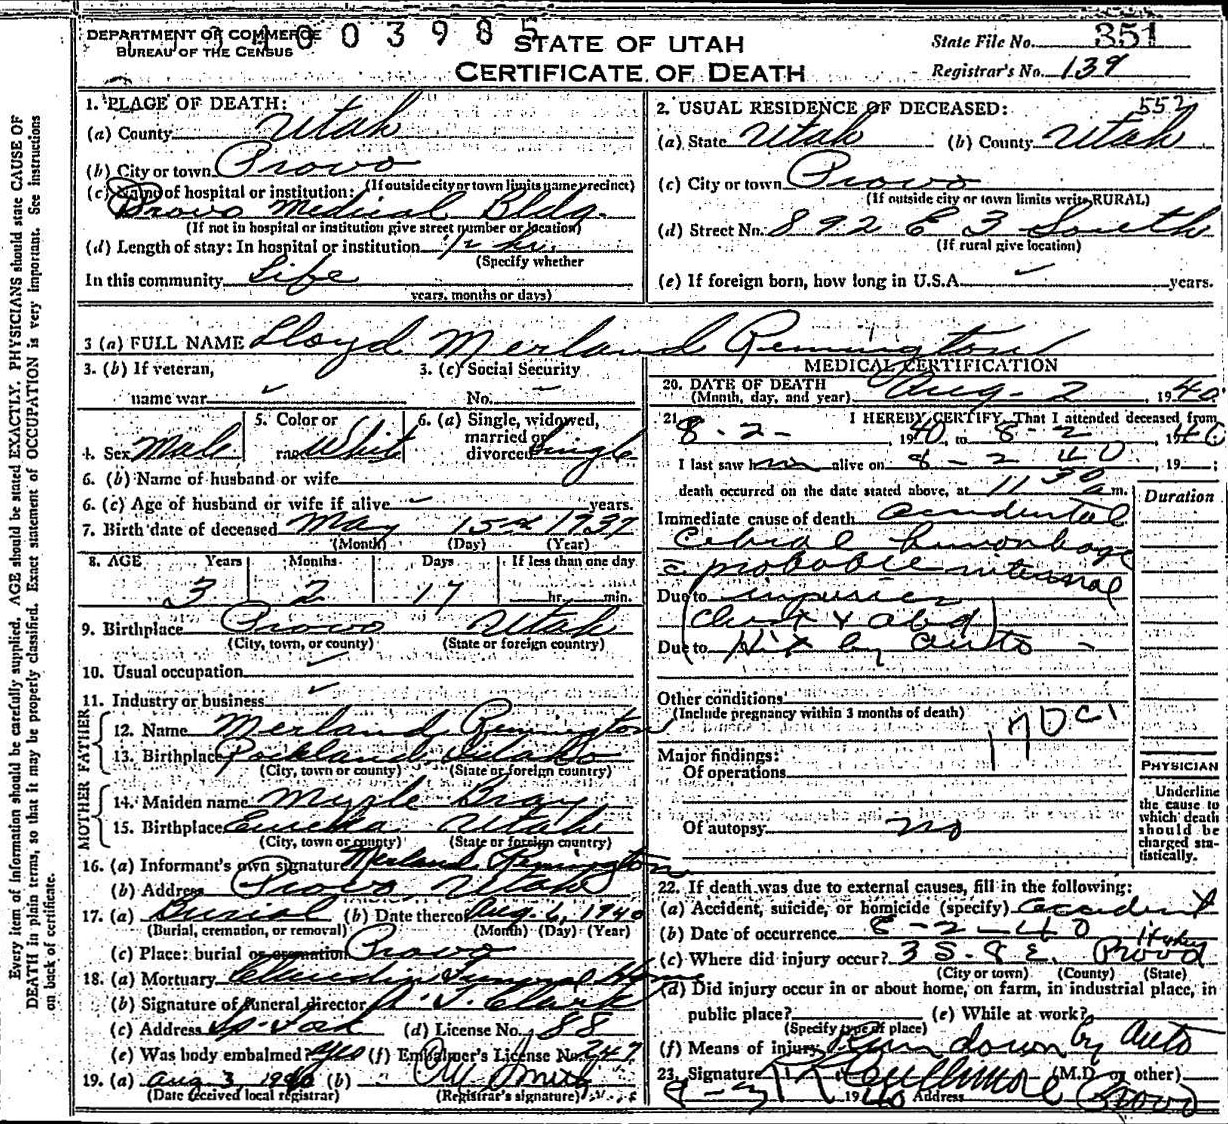 DEPARTMENT OF COMMERCE
BUREAU OF THE CENSUS
4003985
STATE OF UTAH
CERTIFICATE OF DEATH
State File No. 351
Registrar's No. 139
Every item of information should be carefully supplied. AGE should be stated EXACTLY. PHYSICIANS should state CAUSE OF
DEATH in plain terms, so that it may be properly classified. Exact statement of OCCUPATION is very important. See instructions
on back of certificate.
1. PLACE OF DEATH:
(a) County Utah
(b) City or town Provo
(If outside city or town limits name precinct)
(c) Name of hospital or institution:
Provo Medical Bldg.
(If not in hospital or institution give street number or location)
(d) Length of stay: In hospital or institution 1/2 hr.
(Specify whether
In this community Life
years, months or days)
2. USUAL RESIDENCE OF DECEASED: 552
(a) State Utah (b) County Utah
(c) City or town Provo
(If outside city or town limits write RURAL)
(d) Street No. 892 E 3 South
(If rural give location)
(e) If foreign born, how long in U.S.A. years.
3 (a) FULL NAME Lloyd Merland Remington
3. (b) If veteran,
name war
3. (c) Social Security
No.
4. Sex Male
5. Color or
race White
6. (a) Single, widowed,
married or
divorced Single
6. (b) Name of husband or wife
6. (c) Age of husband or wife if alive years.
7. Birth date of deceased May 15th 1937
(Month) (Day) (Year)
8. AGE Years Months Days If less than one day
3 2 17 hr. min.
9. Birthplace Provo Utah
(City, town, or county) (State or foreign country)
10. Usual occupation
11. Industry or business
FATHER
12. Name Merland Remington
13. Birthplace Rockland, Idaho
(City, town or county) (State or foreign country)
MOTHER
14. Maiden name Myrle Bray
15. Birthplace Eureka Utah
(City, town or county) (State or foreign country)
16. (a) Informant's own signature Merland Remington
(b) Address Provo Utah
17. (a) Burial (b) Date thereof Aug. 6, 1940
(Burial, cremation, or removal) (Month) (Day) (Year)
(c) Place: burial or cremation Provo
18. (a) Mortuary Claudin Funeral Home
(b) Signature of funeral director A. T. Clark
(c) Address Sp-Fork (d) License No. 88
(e) Was body embalmed? Yes (f) Embalmer's License No. 247
19. (a) Aug 3, 1940 (b) Smith
(Date received local registrar) (Registrar's signature)
MEDICAL CERTIFICATION
20. DATE OF DEATH
(Month, day, and year) Aug - 2, 1940
21. I HEREBY CERTIFY, That I attended deceased from
8-2- 1940, to 8-2, 1940
I last saw him alive on 8-2 40, 19 ;
death occurred on the date stated above, at 11 30 a m.
Duration
Immediate cause of death accidental
Cebral hemorrhage
c probable internal
Due to injuries
(Chest & abd)
Due to Hit by auto -
Other conditions
(Include pregnancy within 3 months of death)
170 c1
Major findings:
Of operations
Of autopsy no
PHYSICIAN
Underline
the cause to
which death
should be
charged sta-
tistically.
22. If death was due to external causes, fill in the following:
(a) Accident, suicide, or homicide (specify) accident
(b) Date of occurrence 8-2-40
(c) Where did injury occur? 3 S. - 9 E. Provo
(City or town) (County) (State)
(d) Did injury occur in or about home, on farm, in industrial place, in
public place? (e) While at work?
(Specify type of place)
(f) Means of injury Run down by Auto
23. Signature (M.D. or other)
1940 Address Provo